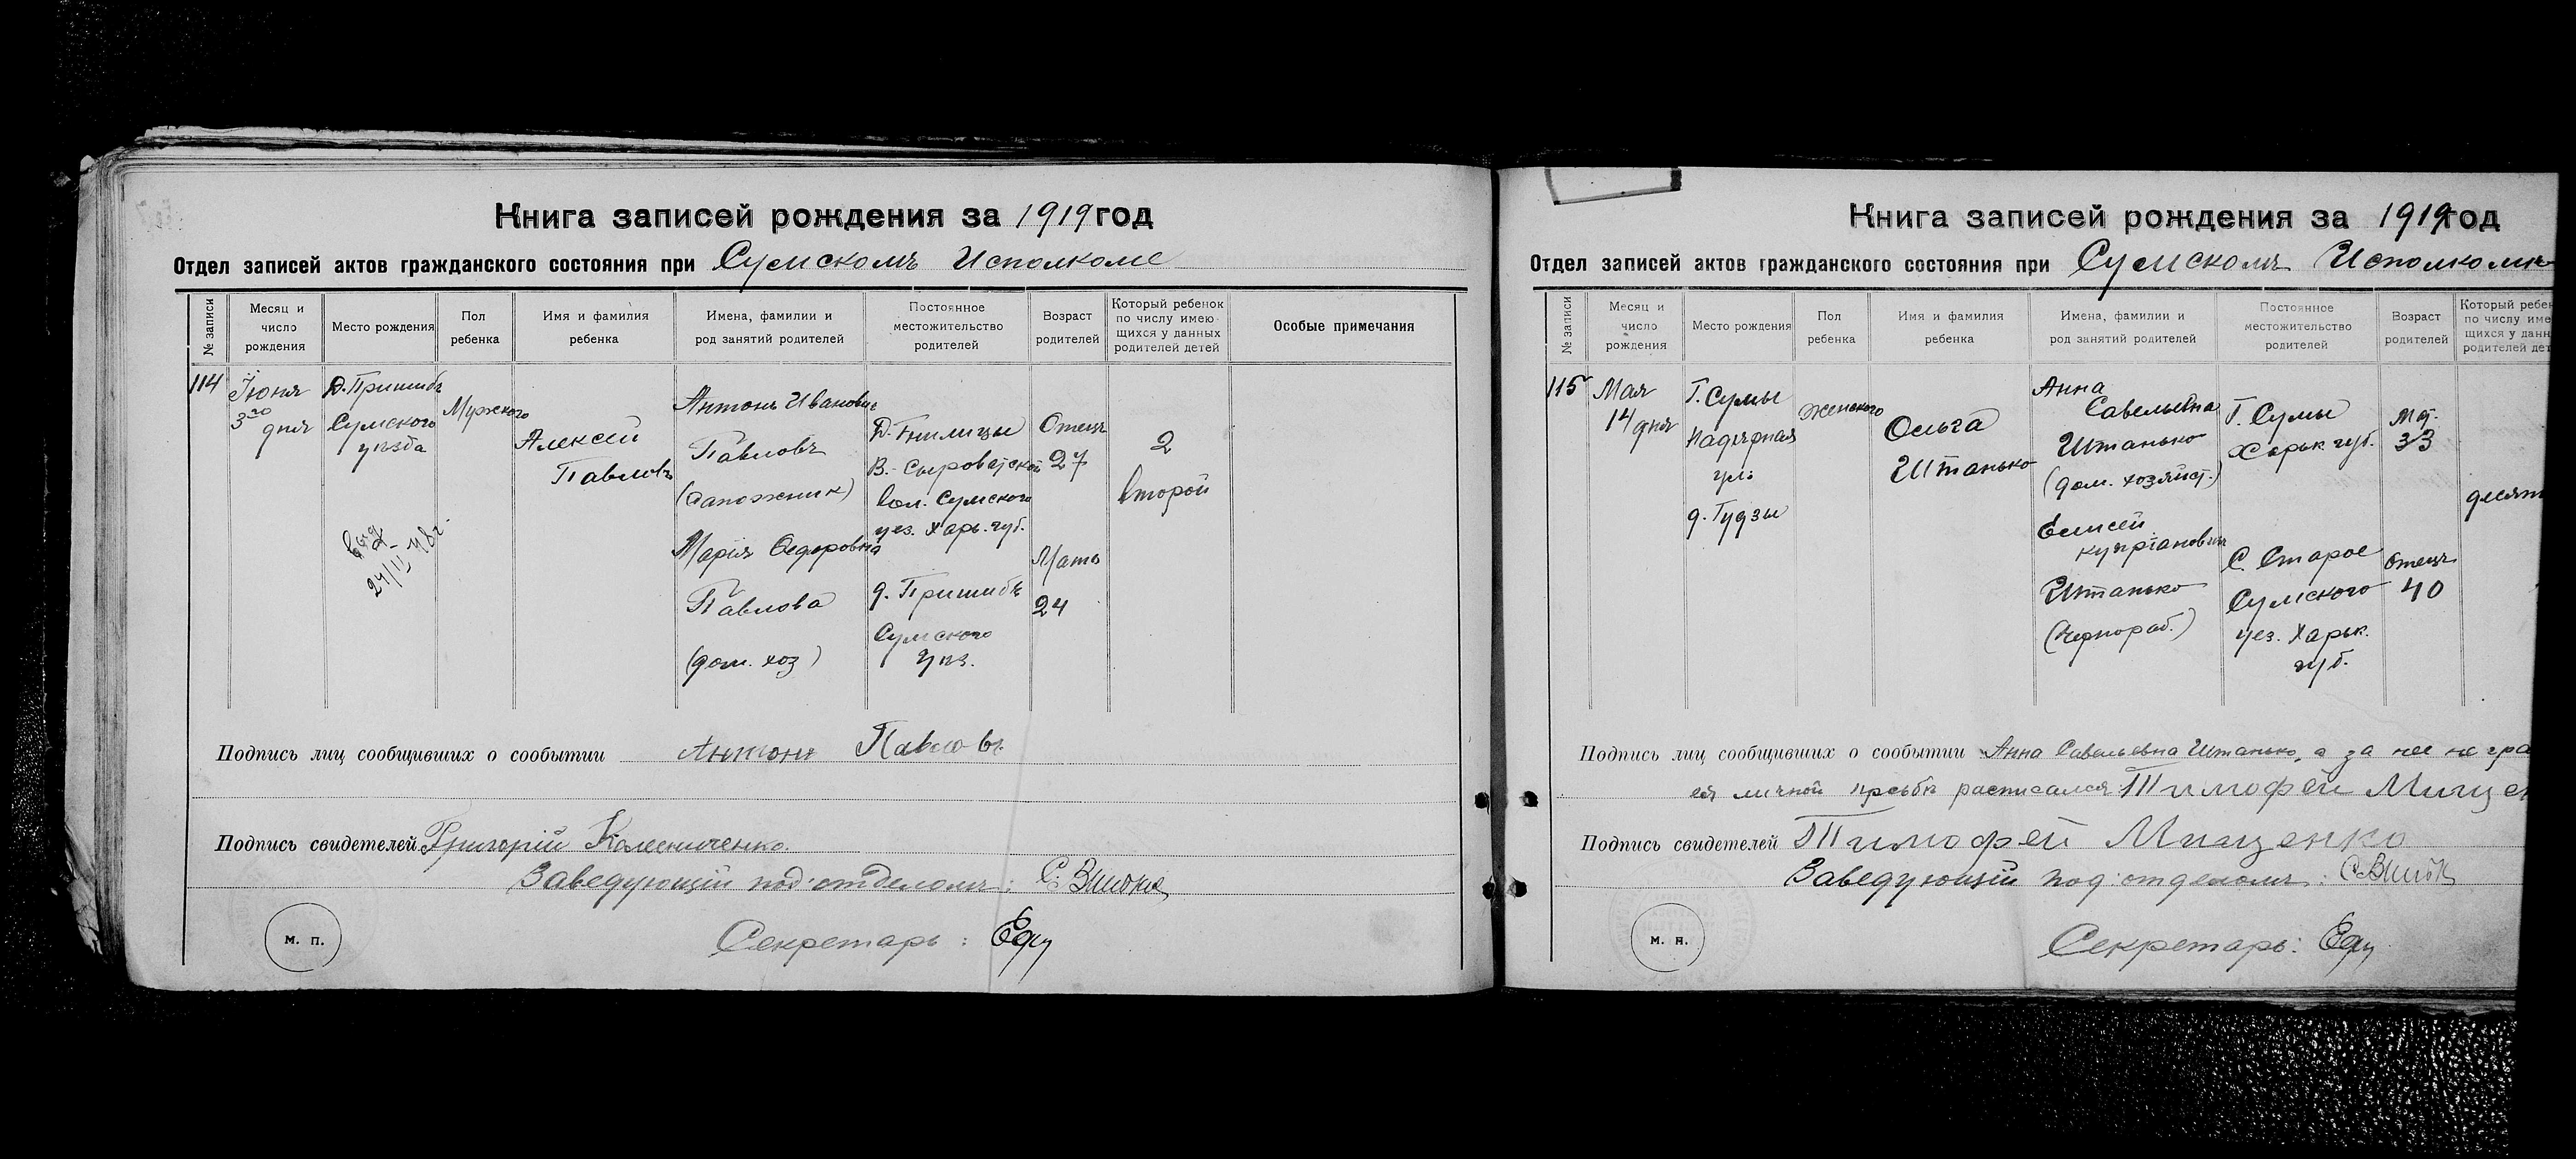 Книга записей рождения за 1919 год
Отдел записей актов гражданского состояния при Сумскомъ Исполкоме
№ записи
Месяц и число рождения
Место рождения
Пол ребенка
Имя и фамилия ребенка
Имена, фамилии и род занятий родителей
Постоянное местожительство родителей
Возраст родителей
Который ребенок по числу имеющихся у данных родителей детей
Особые примечания
114
Іюня
3го дня
Д. Пришибъ
Сумского
уѣзда
Мужского
Алексей
Павловъ
Антонъ Ивановичъ
Павловъ
(сапожник)
Марія Федоровна
Павлова
(дом. хоз)
Д. Гнилицы
В.-Сыроватской
вол. Сумского
уез. Харь. губ.
д. Пришибъ
Сумского
уѣз.
Отецъ
27
Мать
24
2
второй
24/II 48г.
Подпись лиц сообщивших о сообытии Антонъ Павловъ
Подпись свидетелей Григорій Колесниченко.
Заведующій под'отделомъ:
Секретарь:
м. п.
Книга записей рождения за 1919 год
Отдел записей актов гражданского состояния при Сумскомъ Исполкомѣ
№ записи
Месяц и число рождения
Место рождения
Пол ребенка
Имя и фамилия ребенка
Имена, фамилии и род занятий родителей
Постоянное местожительство родителей
Возраст родителей
Который ребен
по числу име
щихся у данн
родителей дет
115
Мая
14 дня
Г. Сумы
ул.
д. Гудзы
женского
Ольга
Штанько
Анна
Савельевна
Штанько
(дом. хозяйст.)
Елисей
Куприановичъ
Штанько
(чернораб.)
Г. Сумы
Харьк. губ.
С. Старое
Сумского
уез. Харьк.
губ.
Мат.
33
Отецъ
40
десят
Подпись лиц сообщивших о сообытии Анна Савельевна Штанько, а за нее не гра
ея личной прсьбѣ расписался Тимофей Мищен
Подпись свидетелей Тимофей Мищенко
Заведующій под'отделомъ:
Секретарь:
м. п.